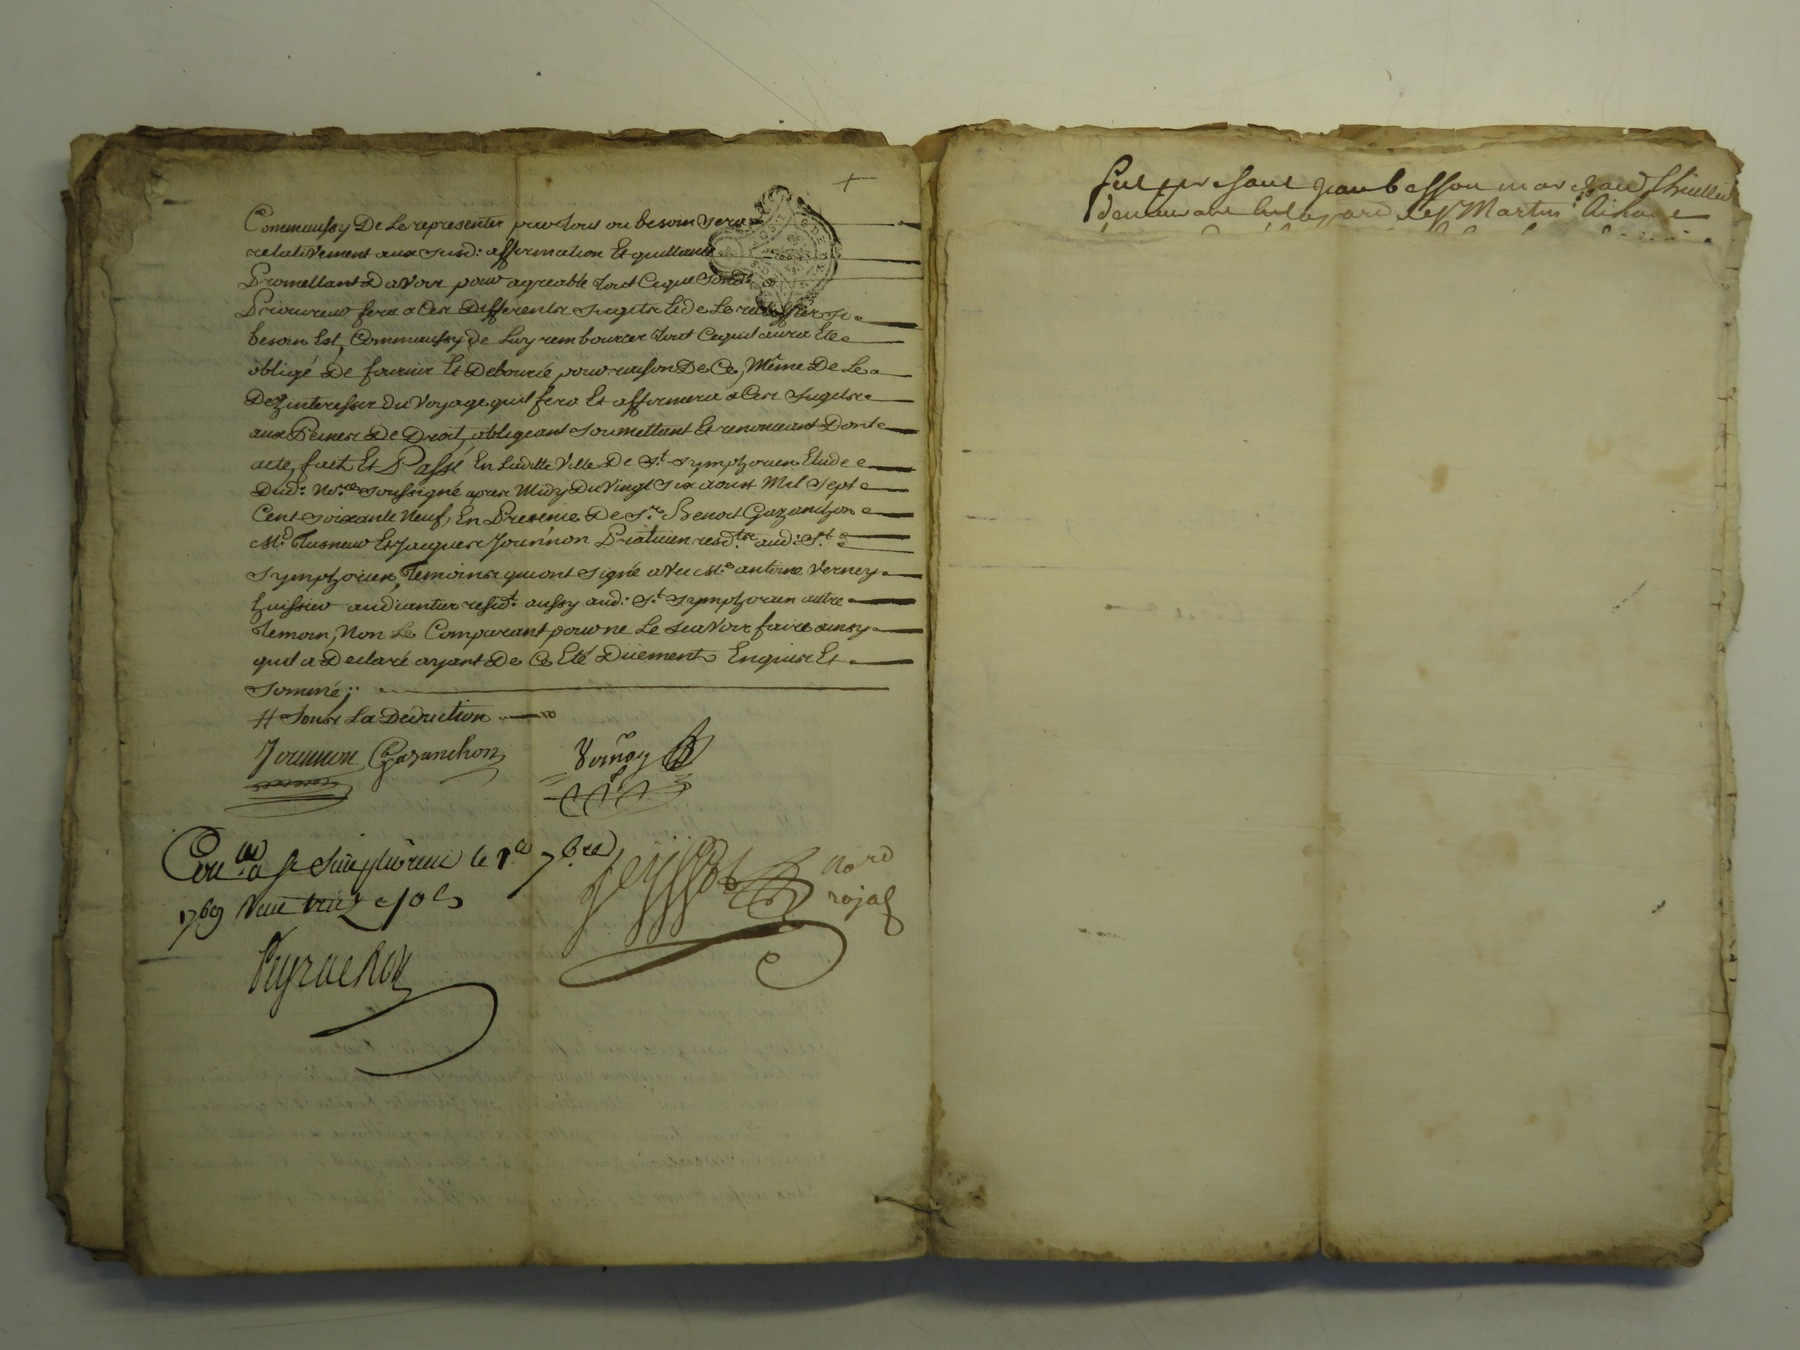 Commaussy De Le representer par tout ou besoin sera
relativement aux susd: affirmation Et quittance
Promettant D'avoir pour agreable tout Ceque Sond:
Procureur fera a Ces Differents sujets Et de Le rellever si
besoin Est, Commaussy de Luy rembourcer tout Cequil aura Ete
obligé De fournir Et Debourcé pour raison De Ce, Même De Le
Dezinteresser Du Voyage quil fera Et affirmera a Ces Sujets
aux Peines De Droit, obligeant Soumettant Et renonceant Dont
acte, fait Et Passé En Ladite Ville De St. Symphorien Etude
Dud: Nore. Soussigné apres Midy Du Vingt Six aoust Mil Sept
Cent Soixante Neuf, En Presence De Sr. Benoit Gazanchon
Md. Et Jacques Jouinon Praticien residts. aud: St.
Symphorien, Temoins qui ont Signé avec Me. antoine Verney
huissier audiantier resid.t aussy aud: St. Symphorien autre
Temoin, Non Le Comparant pour ne Le Scavoir faire ainsy
quil a Declaré ayant De Ce Eté Duement Enquis Et
Sommé;
# Sous La Deduction
Jouinon Gazanchon Verney
à St Simphorien le 1er 7bre
1769 treize sols
nore
royal
Peyrachon
fut presant Jean besson marchand
demeurant St Martin